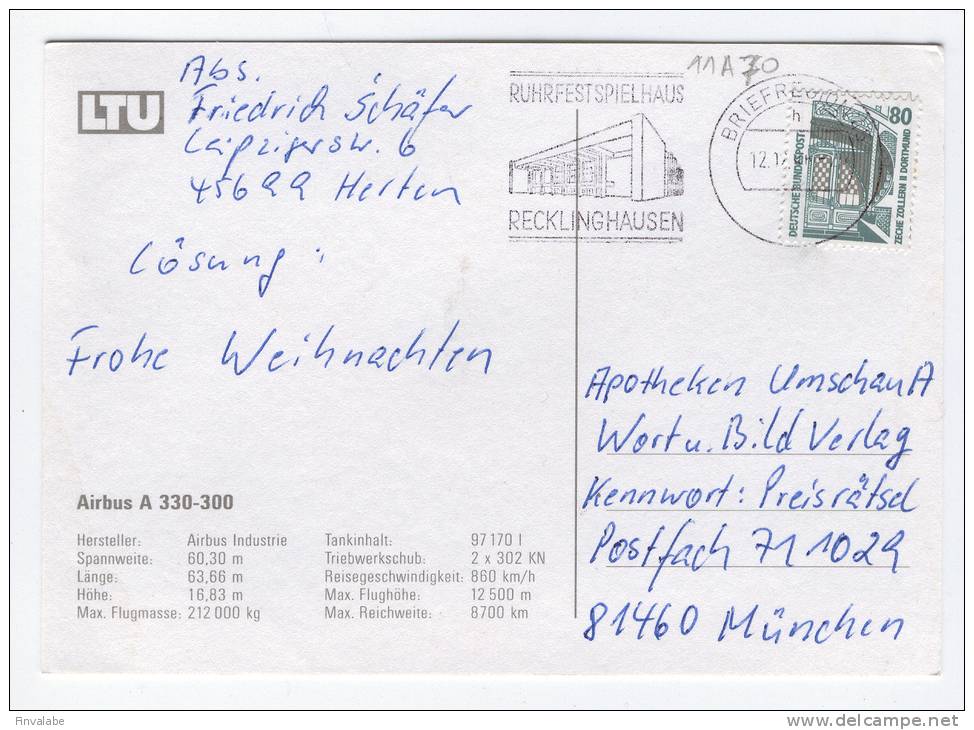 LTU
Abs.
Friedrich Schäfer
Leipzigerstr. 6
45699 Herten
Lösung:
Frohe Weihnachten
Airbus A 330-300
Hersteller: Airbus Industrie Tankinhalt: 97170 l
Spannweite: 60,30 m Triebwerkschub: 2 x 302 KN
Länge: 63,66 m Reisegeschwindigkeit: 860 km/h
Höhe: 16,83 m Max. Flughöhe: 12 500 m
Max. Flugmasse: 212 000 kg Max. Reichweite: 8700 km
11A70
RUHRFESTSPIELHAUS
RECKLINGHAUSEN
80
DEUTSCHE BUNDESPOST
ZECHE ZOLLERN II DORTMUND
Apotheken Umschau A
Wort u. Bild Verlag
Kennwort: Preisrätsel
Postfach 711029
81460 München
finvalabe
www.delcampe.net